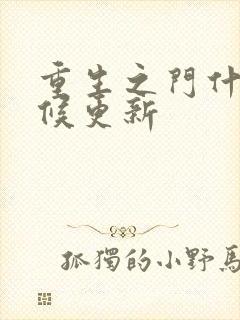 重生之門什
候更新
孤獨的小野馬